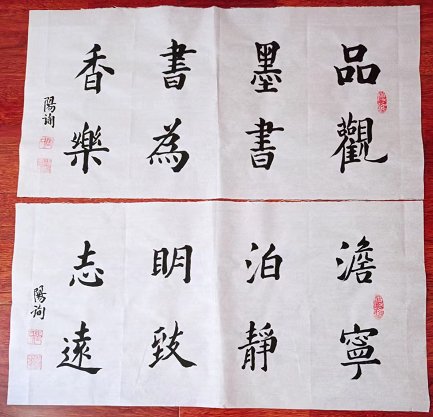 品墨書香
觀書為樂
陽詢
澹泊明志
寧靜致遠
陽詢